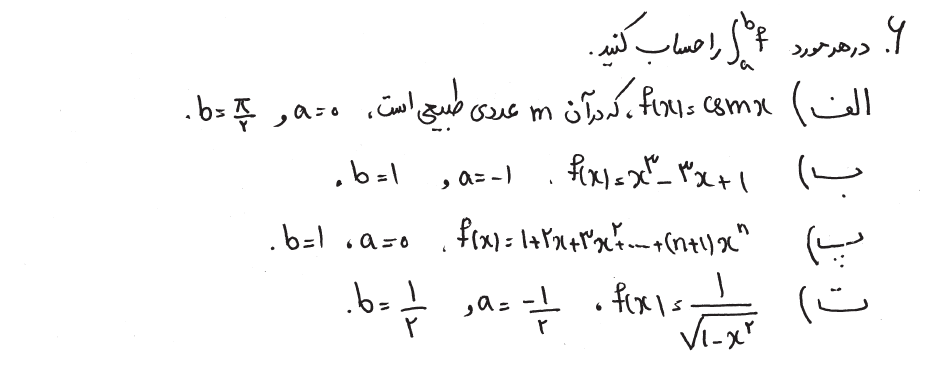 ۶. در هر مورد ∫ₐᵇ f را حساب کنید.
الف) f(x) = cos mx، که در آن m عددی طبیعی است، a = ۰ و b = π/۲.
ب) f(x) = x³ − ۳x + ۱، a = −۱ و b = ۱.
پ) f(x) = ۱ + ۲x + ۳x² + ... + (n+۱)xⁿ، a = ۰، b = ۱.
ت) f(x) = ۱/√(۱ − x²)، a = −۱/۲ و b = ۱/۲.